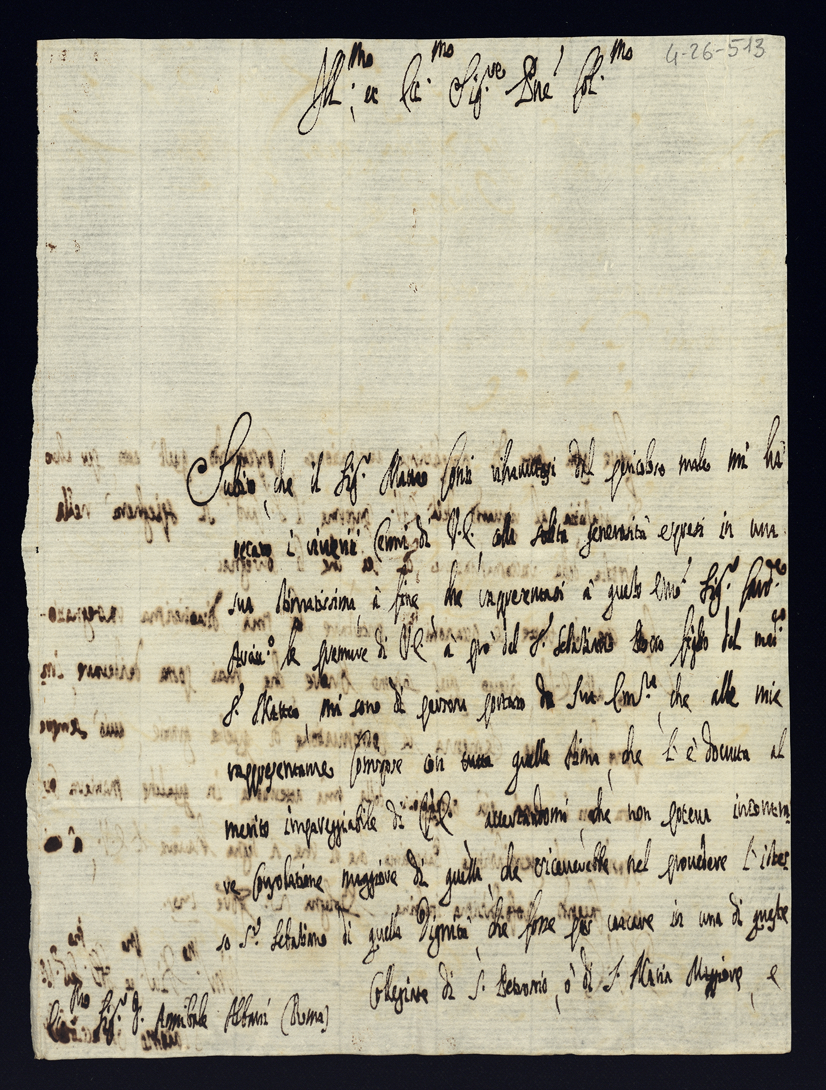 4-26-513
Ill.mo et Ecc.mo Sig.re Pne Col.mo
Subito, che il Sig.r Matteo Conti rihavutosi dal pericoloso male mi hà
recato i riveriti Cenni di V.E. colla solita generosità espressi in una
sua stimatissima à fine che rappresentassi à questo Em.o Sig.r Card.e
Arciv.o le premure di V.E. à prò del S.r Sebastiano figlio del med.o
S.r Matteo mi sono di portato da Sua Em.za, che alle mie
rappresentanze Corrispose con tutta quella stima, che si è dovuta al
merito impareggiabile di V.E. accertandomi, che non poteva incontra
re Consolatione maggiore di quella, che ricaverebbe nel provedere l'istes
so S.r Sebastiano di quella Dignità, che forse per vacare in una di queste
Collegiate di S. Petronio, ò di S. Maria Maggiore, e
Sig.r D. Annibale Albani (Roma)